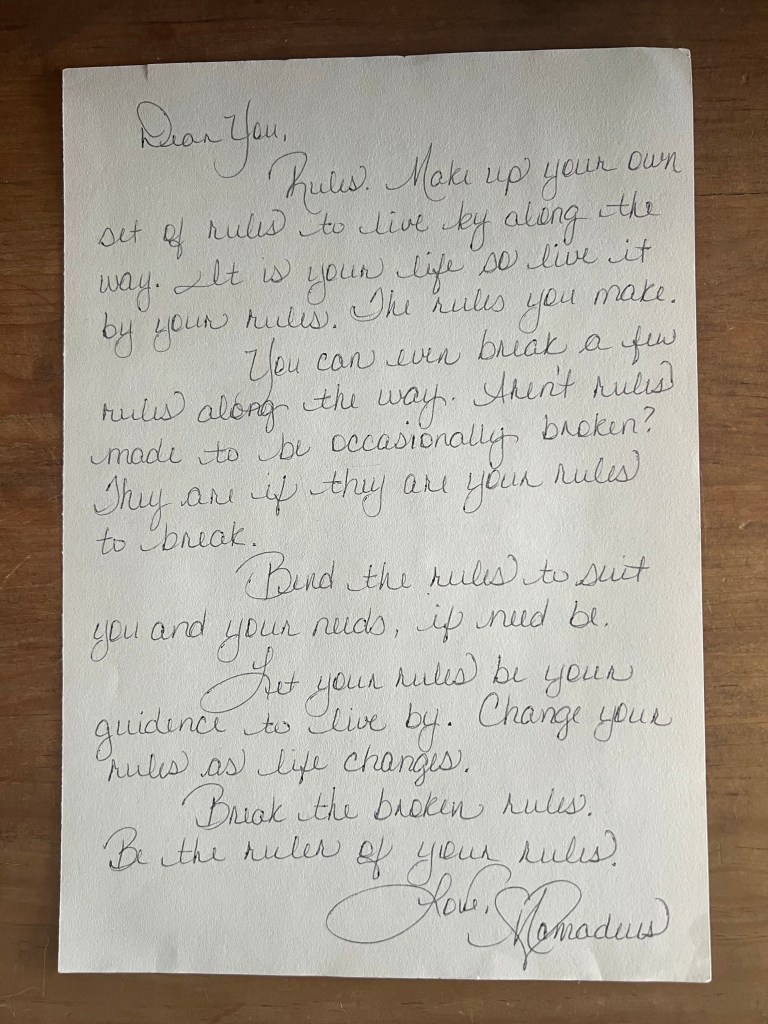 Dear You,
Rules. Make up your own
set of rules to live by along the
way. It is your life so live it
by your rules. The rules you make.
You can even break a few
rules along the way. Aren't rules
made to be occasionally broken?
They are if they are your rules
to break.
Bend the rules to suit
you and your needs, if need be.
Let your rules be your
guidence to live by. Change your
rules as life changes.
Break the broken rules.
Be the ruler of your rules.
Love,
Mamadeus